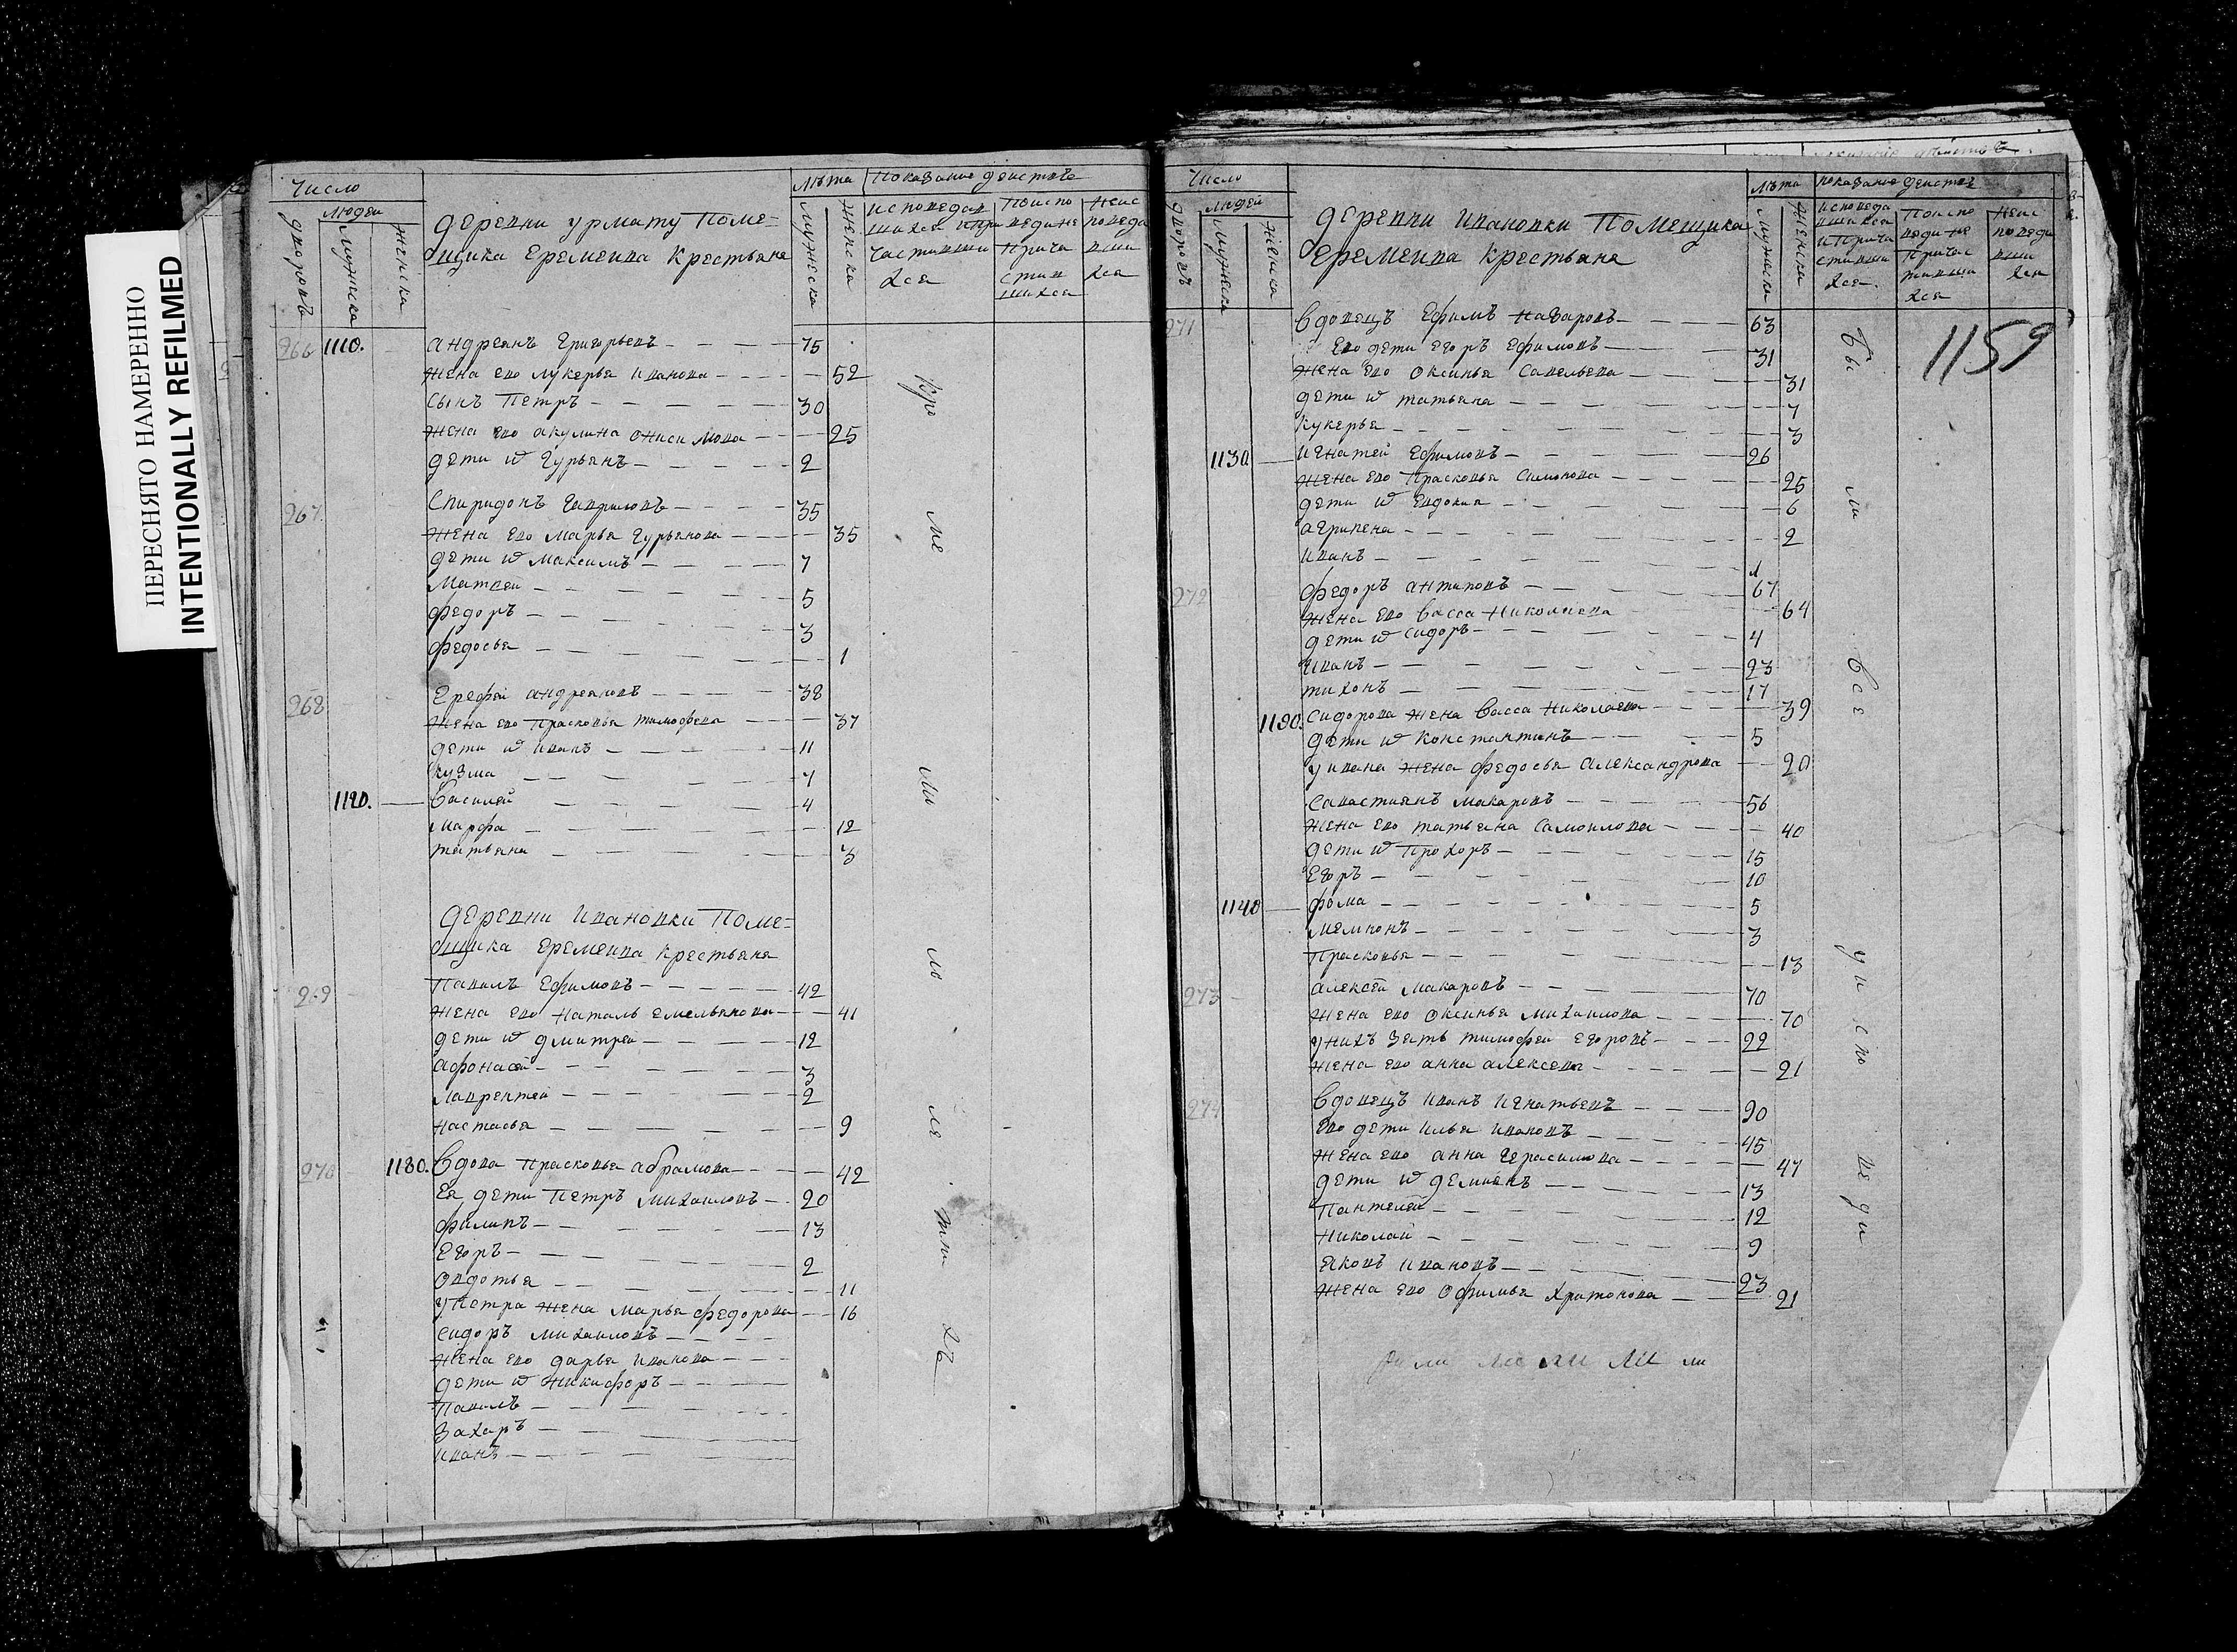 ПЕРЕСНЯТО НАМЕРЕННО
INTENTIONALLY REFILMED
Число
людей
дворовъ
мужска
женска
деревни урмату Поме-
щика Еремеива крестьяна
лѣта
мужеска
женска
показание действъ
исповедав
шихся ипри
частивши
хся
Поиспо
веди не
прича
стив
шихся
Неис
поведа
вши
хся
266 1110. андреянъ Григорьевъ 75
жена его лукерья иванова 52
сынъ Петръ 30
жена его акулина онисимова 25
дети ѿ Гурьянъ 2
267. Спиридонъ Гавриловъ 35
жена его марья Гурьянова 35
дети ѿ максимъ 7
Матвеи 5
федоръ 3
федосья 1
268 Ерефеи андреяновъ 38
жена его Прасковья тимофева 37
дети ѿ иванъ 11
кузма 7
1120. василей 4
марфа 12
татьяна 3
деревни ивановки Поме-
щика Еремеива крестьяна
269 Павилъ Ефимовъ 42
жена его Наталь емельянова 41
дети ѿ дмитреи 12
афонасеи 3
лаврентеи 2
настасья 9
270 1180. Вдова прасковья абрамова 42
Ея дети Петръ михаиловъ 20
филипъ 13
Егоръ 2
овдотья 11
уПетра жена марья федорова 16
сидоръ михаиловъ
жена его дарья иванова
дети ѿ никифоръ
Павилъ
Захаръ
иванъ
Число
людей
дворовъ
мужеска
женска
деревни ивановки Помещика
Еремеива крестьяна
лѣта
мужеска
женска
показание действъ
исповеда
вшихся
иПрича
стивши
хся.
Поиспо
веди не
Причас
тивши
хся
Неис
поведа
вши
хся
1159
271 Вдовецъ Ефимъ назаровъ 63
Его дети егоръ Ефимовъ 31
жена его оксинья савельева 31
дети ѿ татьяна 7
лукерья 3
1130 игнатеи Ефимовъ 26
жена его Прасковья симонова 25
дети ѿ евдокия 6
агрипена 2
иванъ 1
272 федоръ антиповъ 67
жена его васса николаева 64
дети ѿ сидоръ 4
иванъ 23
тихонъ 17
1190. сидорова жена васса николаева 39
дети ѿ константинъ 5
у ивана жена федосья александрова 20
савастиянъ макаровъ 56
жена его татьяна самоилова 40
дети ѿ Прохоръ 15
Егоръ 10
1140 фома 5
мемнонъ 3
Прасковья 13
273 алексеи макаровъ 70
жена его оксинья михаилова 70
унихъ зять тимофеи егоровъ 22
жена его анна алексеева 21
274 Вдовецъ иванъ игнатьевъ 90
Его дети илья ивановъ 45
жена его анна герасимова 47
дети ѿ демиянъ 13
Пантелеи 12
николаи 9
яковъ ивановъ 23
жена его офимья харитонова 21